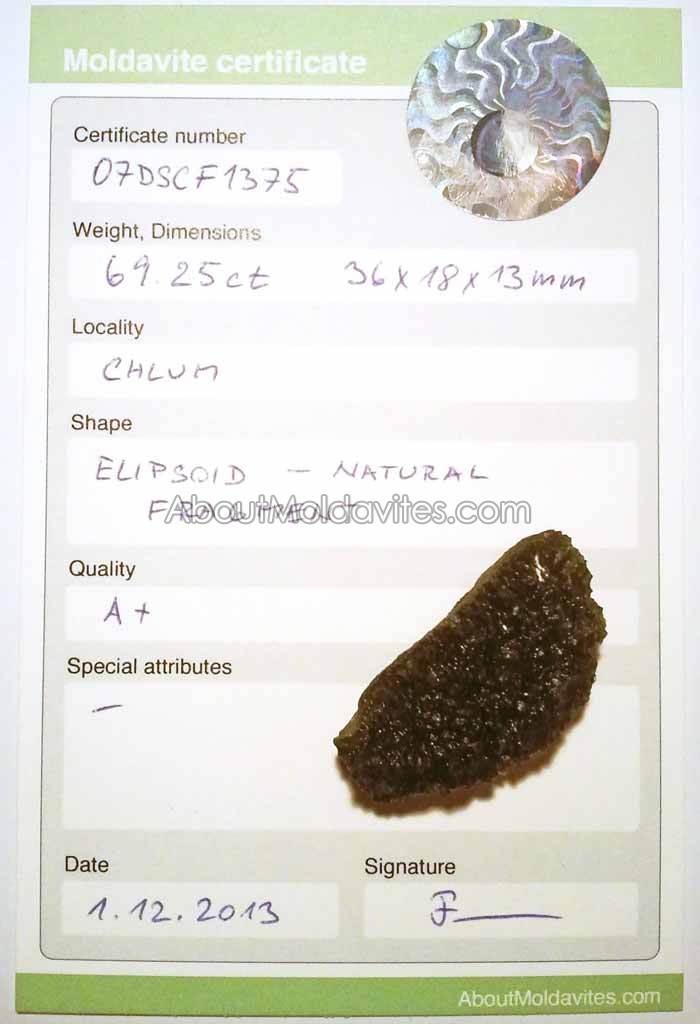 Moldavite certificate
Certificate number
07DSCF1375
Weight, Dimensions
69.25ct 36x18x13mm
Locality
CHLUM
Shape
ELIPSOID - NATURAL
FRAGMENT
AboutMoldavites.com
Quality
A+
Special attributes
-
Date
Signature
1.12.2013
AboutMoldavites.com